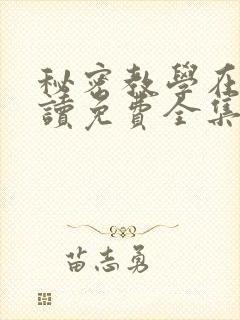 秘密教學在
讀免費全集
苗志勇